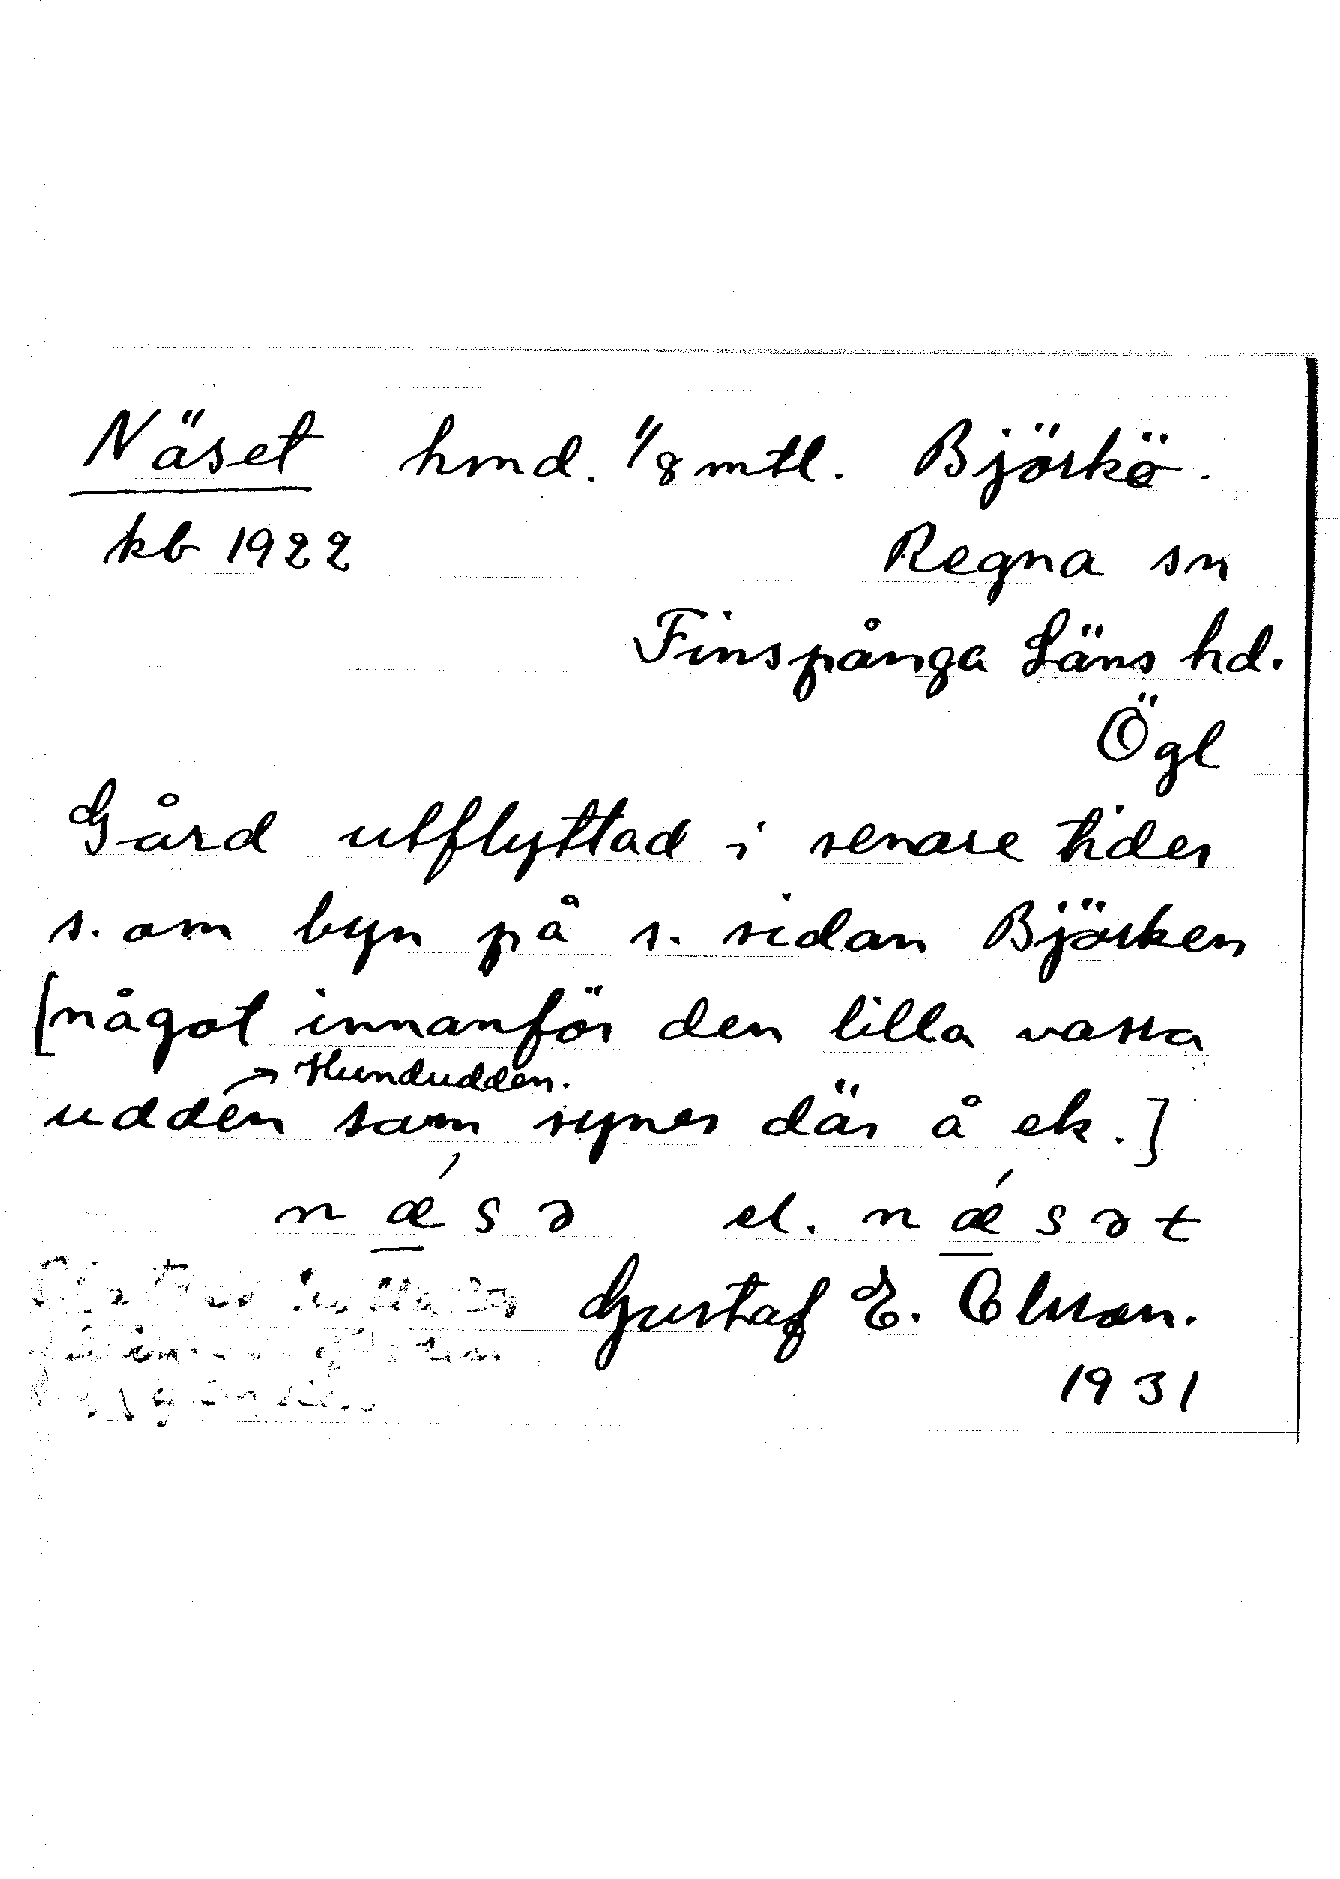 Näset hmd. 1/8 mtl. Björkö.
kb 1922 Regna sn
Finspånga Läns hd.
Ögl
Gård utflyttad i senare tider
s. om byn på s. sidan Björken
[något innanför den lilla vassa
→ Hundudden.
udden som synes där å ek.]
n ǽ s ə el. n ǽ s ə t
Gustaf E. Olsson.
1931